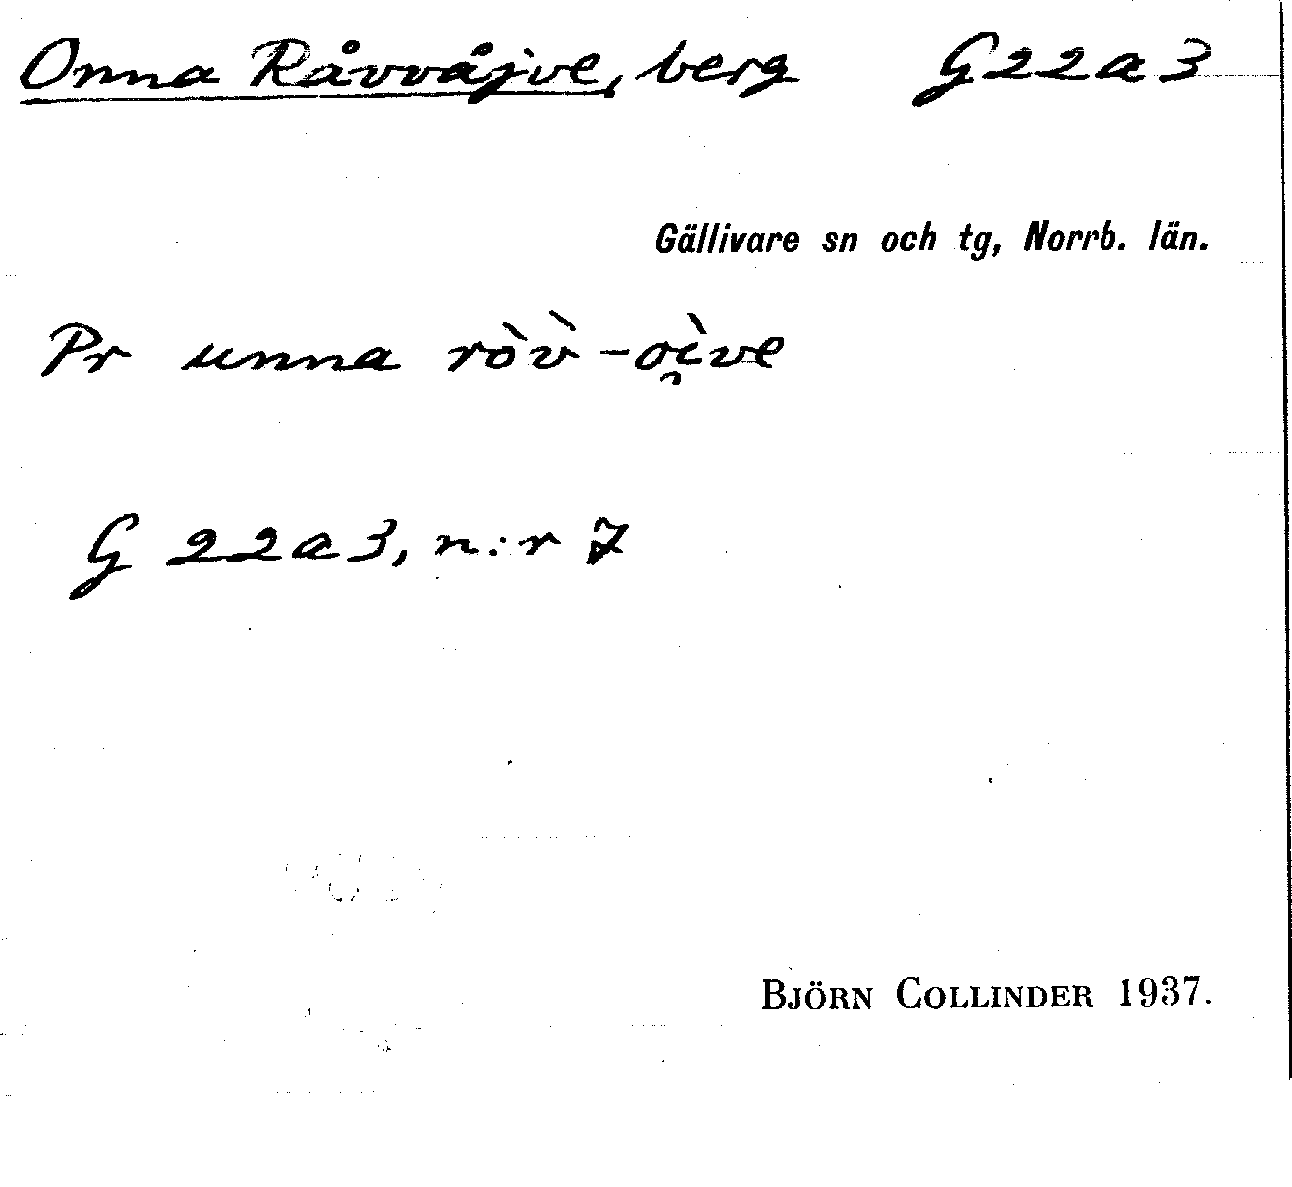 Onna Råvvåjve, berg G22a3
Gällivare sn och tg, Norrb. län.
Pr unna ròv̀-oì̯ve
G 22a3, n:r 7
BJÖRN COLLINDER 1937.